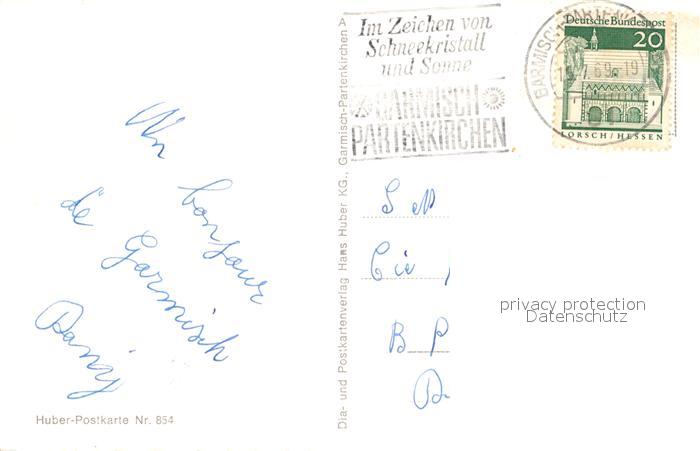 Un
bonjour
de Garmisch
Dany
Huber-Postkarte Nr. 854
Dia- und Postkartenverlag Hans Huber KG., Garmisch-Partenkirchen A
Im Zeichen von
Schneekristall
und Sonne
GARMISCH
PARTENKIRCHEN
Deutsche Bundespost
20
LORSCH/HESSEN
S M
Cie
B P
privacy protection
Datenschutz